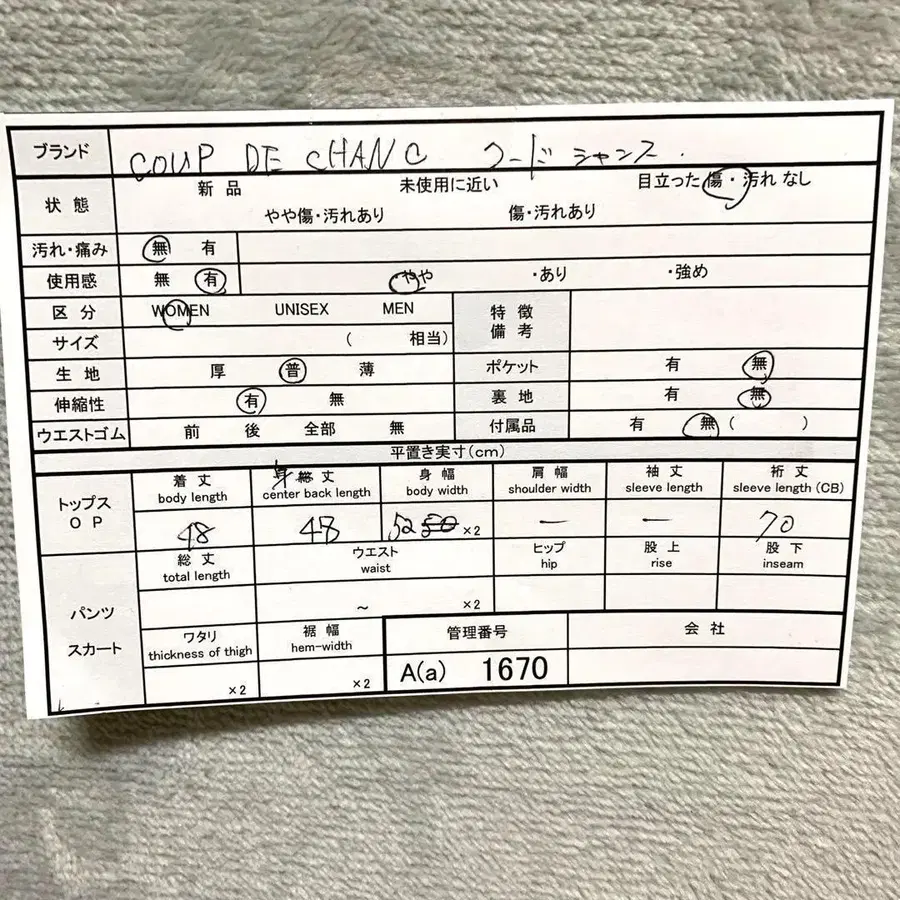 ブランド COUP DE CHANC クードシャンス.
状態 新品 未使用に近い 目立った傷・汚れなし
やや傷・汚れあり 傷・汚れあり
汚れ・痛み 無 有
使用感 無 有 ・やや ・あり ・強め
区分 WOMEN UNISEX MEN 特徴備考
サイズ ( 相当)
生地 厚 普 薄 ポケット 有 無
伸縮性 有 無 裏地 有 無
ウエストゴム 前 後 全部 無 付属品 有 無 ( )
平置き実寸(cm)
トップス 着丈 身総丈 身幅 肩幅 袖丈 裄丈
OP body length center back length body width shoulder width sleeve length sleeve length (CB)
48 48 52 50 ×2 ー ー 70
パンツ 総丈 ウエスト ヒップ 股上 股下
total length waist hip rise inseam
～ ×2
スカート ワタリ 裾幅 管理番号 会社
thickness of thigh hem-width
×2 ×2 A(a) 1670